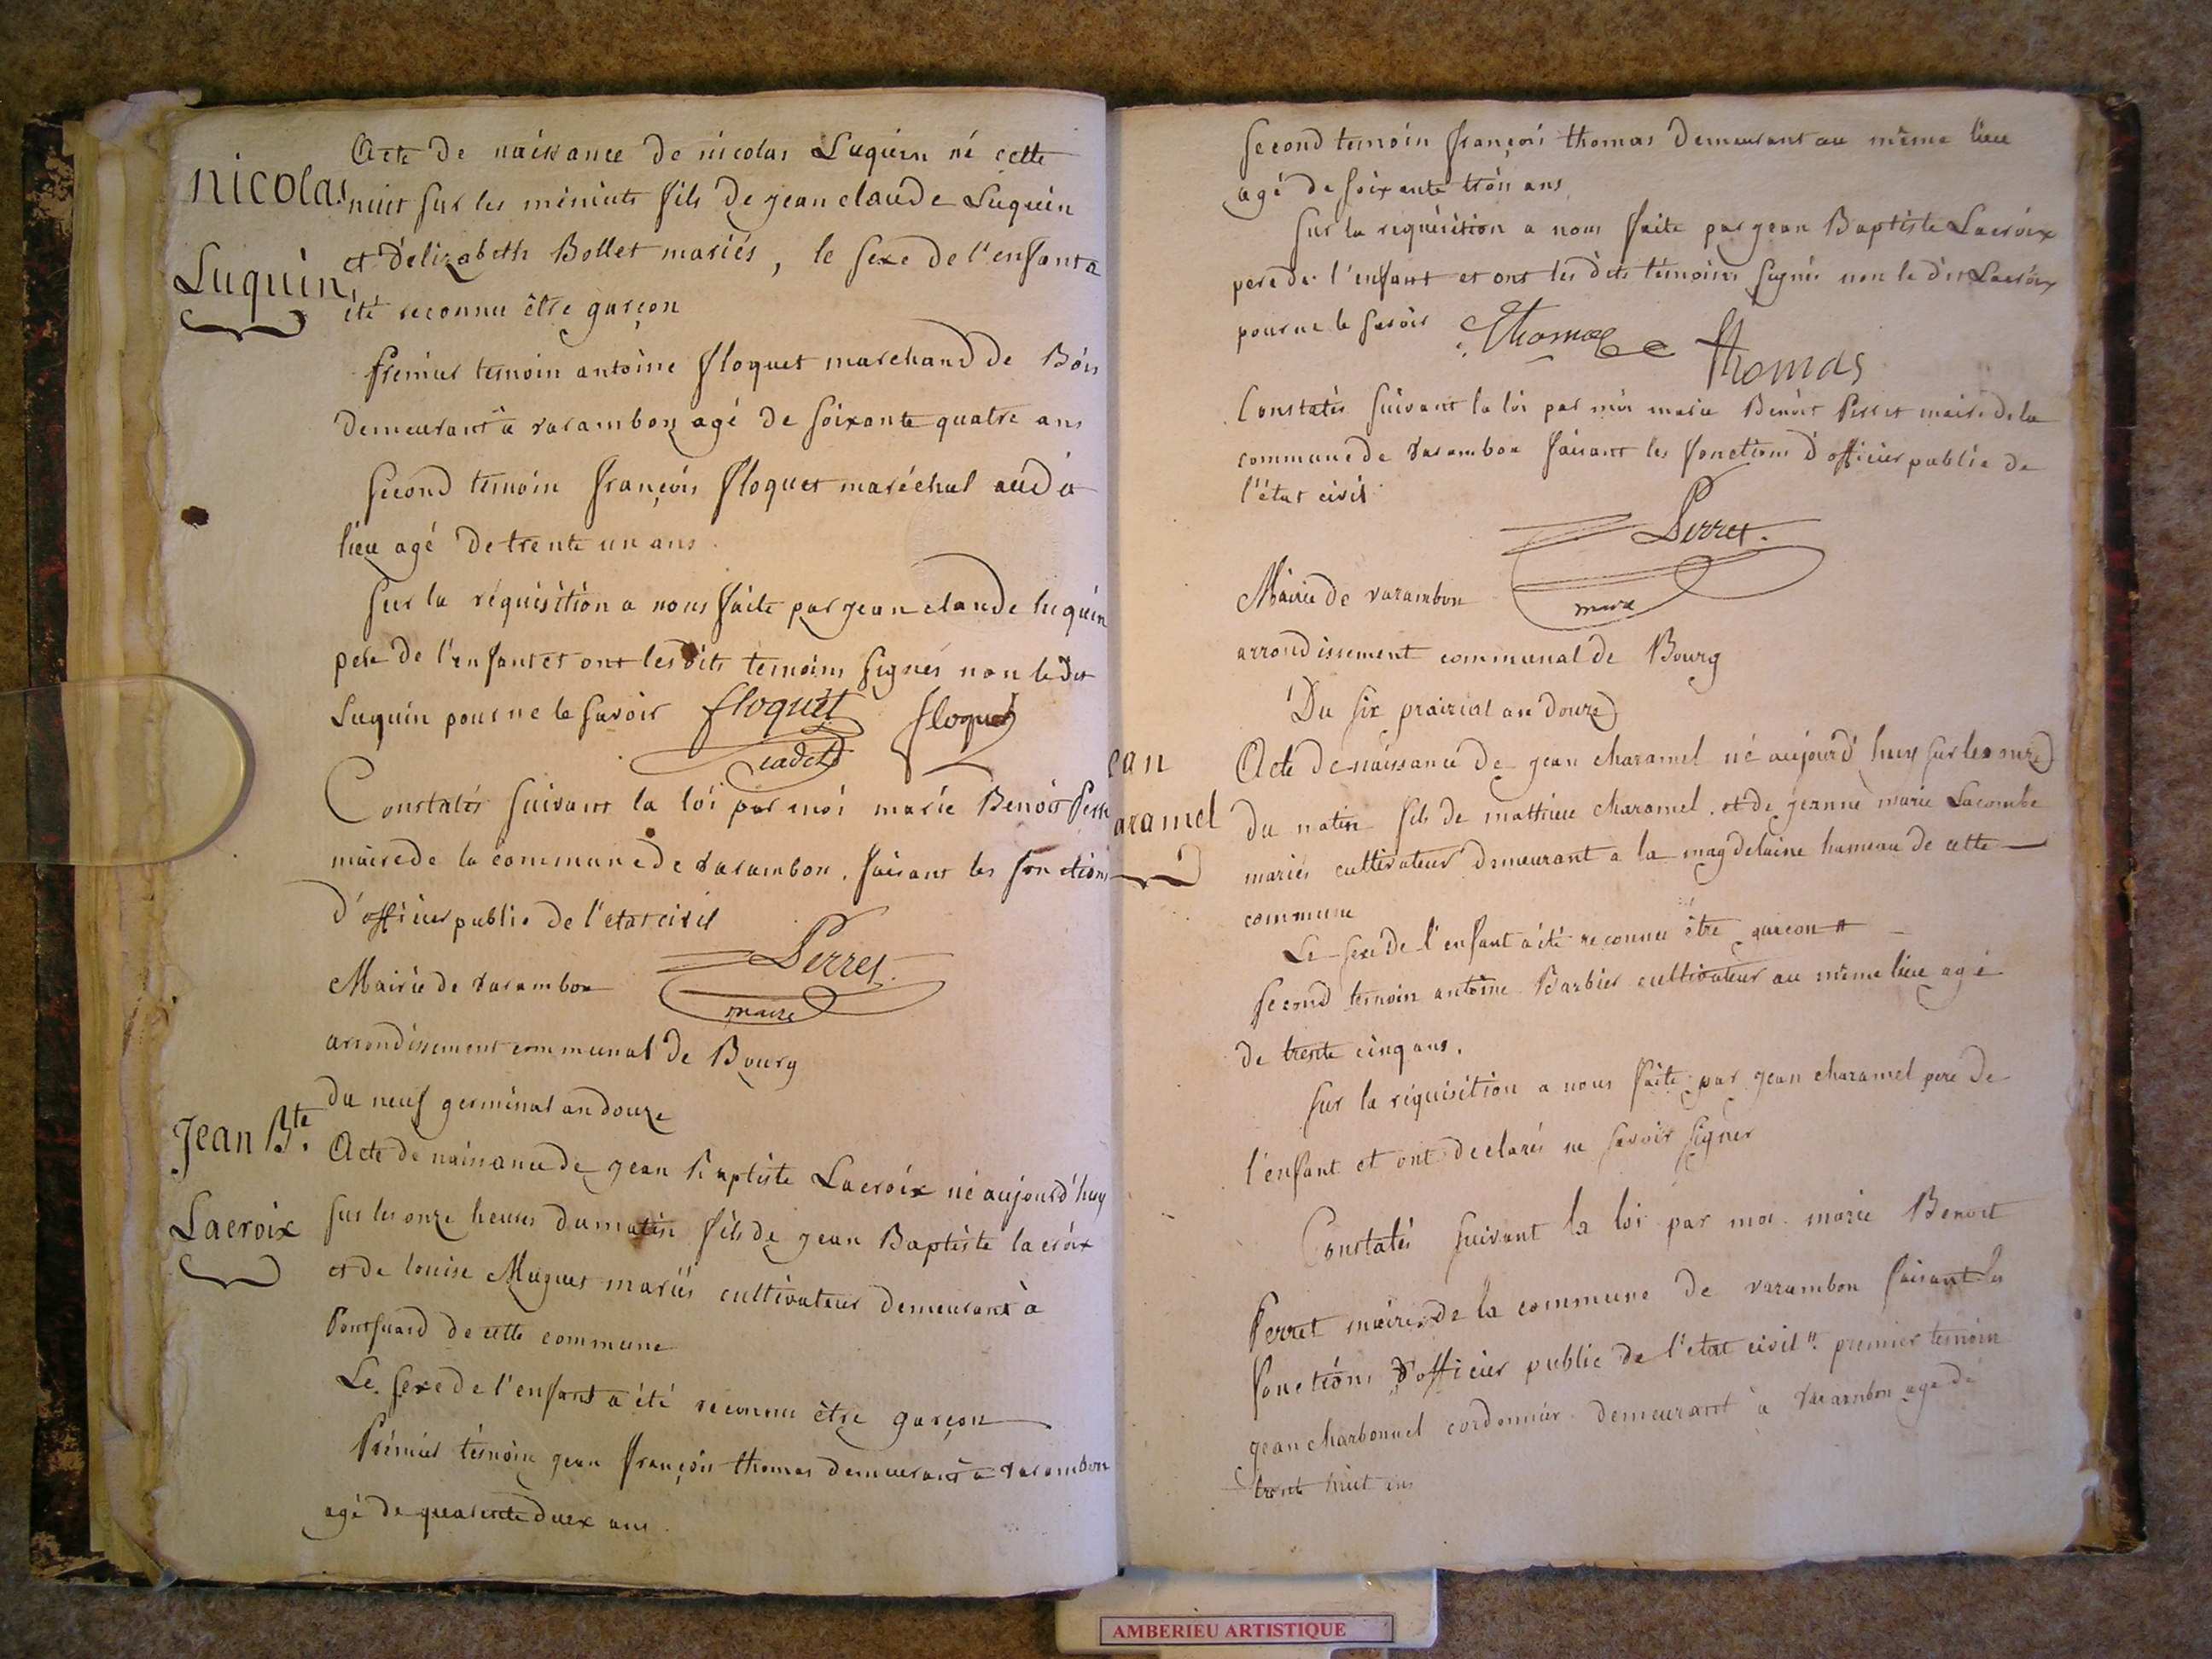 Acte de naissance de nicolas Luquin né cette
nicolas nuit sur les minuits fils de jean claude Luquin
Luquin, et d'elizabeth Bollet mariés, le sexe de l'enfant a
été reconnu être garçon
premier temoin antoine floquet marchand de Bois
demeurant à varambon agé de soixante quatre ans
second temoin françois floquet maréchal audit
lieu agé de trente un ans.
sur la réquisition a nous faite par jean claude luquin
pere de l'enfant et ont lesdits temoins signés non le dit
Luquin pour ne le savoir floquet floquet
cadet
Constatés suivant la loi par moi marie Benoit Perret
maire de la commune de varambon, faisant les fonctions
d'officier public de l'état civil
Perret.
Mairie de varambon
maire
arrondissement communal de Bourg
du neuf germinal an douze
Jean Bte. Acte de naissance de jean Baptiste Lacroix né aujourd'huy
Lacroix sur les onze heures du matin fils de jean Baptiste lacroix
et de louise Muguet mariés cultivateur demeurant à
de cette commune
Le sexe de l'enfant a été reconnu être garçon
Prémier témoin jean françois thomas demeurant à varambon
agé de quarente deux ans.
second temoin françois thomas demeurant au même lieu
agé de soixante trois ans
sur la requisition a nous faite par jean Baptiste Lacroix
pere de l'enfant et ont les dits témoins signés non le dit Lacroix
pour ne le savoir Thomas thomas
Constatés suivant la loi par moi marie Benoit Perret maire de la
commune de varambon faisant les fonctions d'officier public de
l'état civil
Perret.
Mairie de varambon
maire
arrondissement communal de Bourg
Du six prairial an douze
ean Acte de naissance de jean charamel né aujourd'huy sur les onze
aramel du matin fils de mathieu charamel. et de jeanne marie Lacombe
mariés cultivateur demeurant a la magdelaine hameau de cette
commune
Le sexe de l'enfant a été reconnu être garçon #
second temoin antoine Barbier cultivateur au même lieu agé
de trente cinq ans.
sur la réquisition a nous faite par jean charamel pere de
l'enfant et ont declarés ne savoir signer
Constatés suivant la loi par moi marie Benoit
Perret maire de la commune de varambon faisant les
fonctions d'officier public de l'état civil # premier temoin
jean charbonnel cordonnier demeurant à varambon agé de
trente huit ans
AMBERIEU ARTISTIQUE